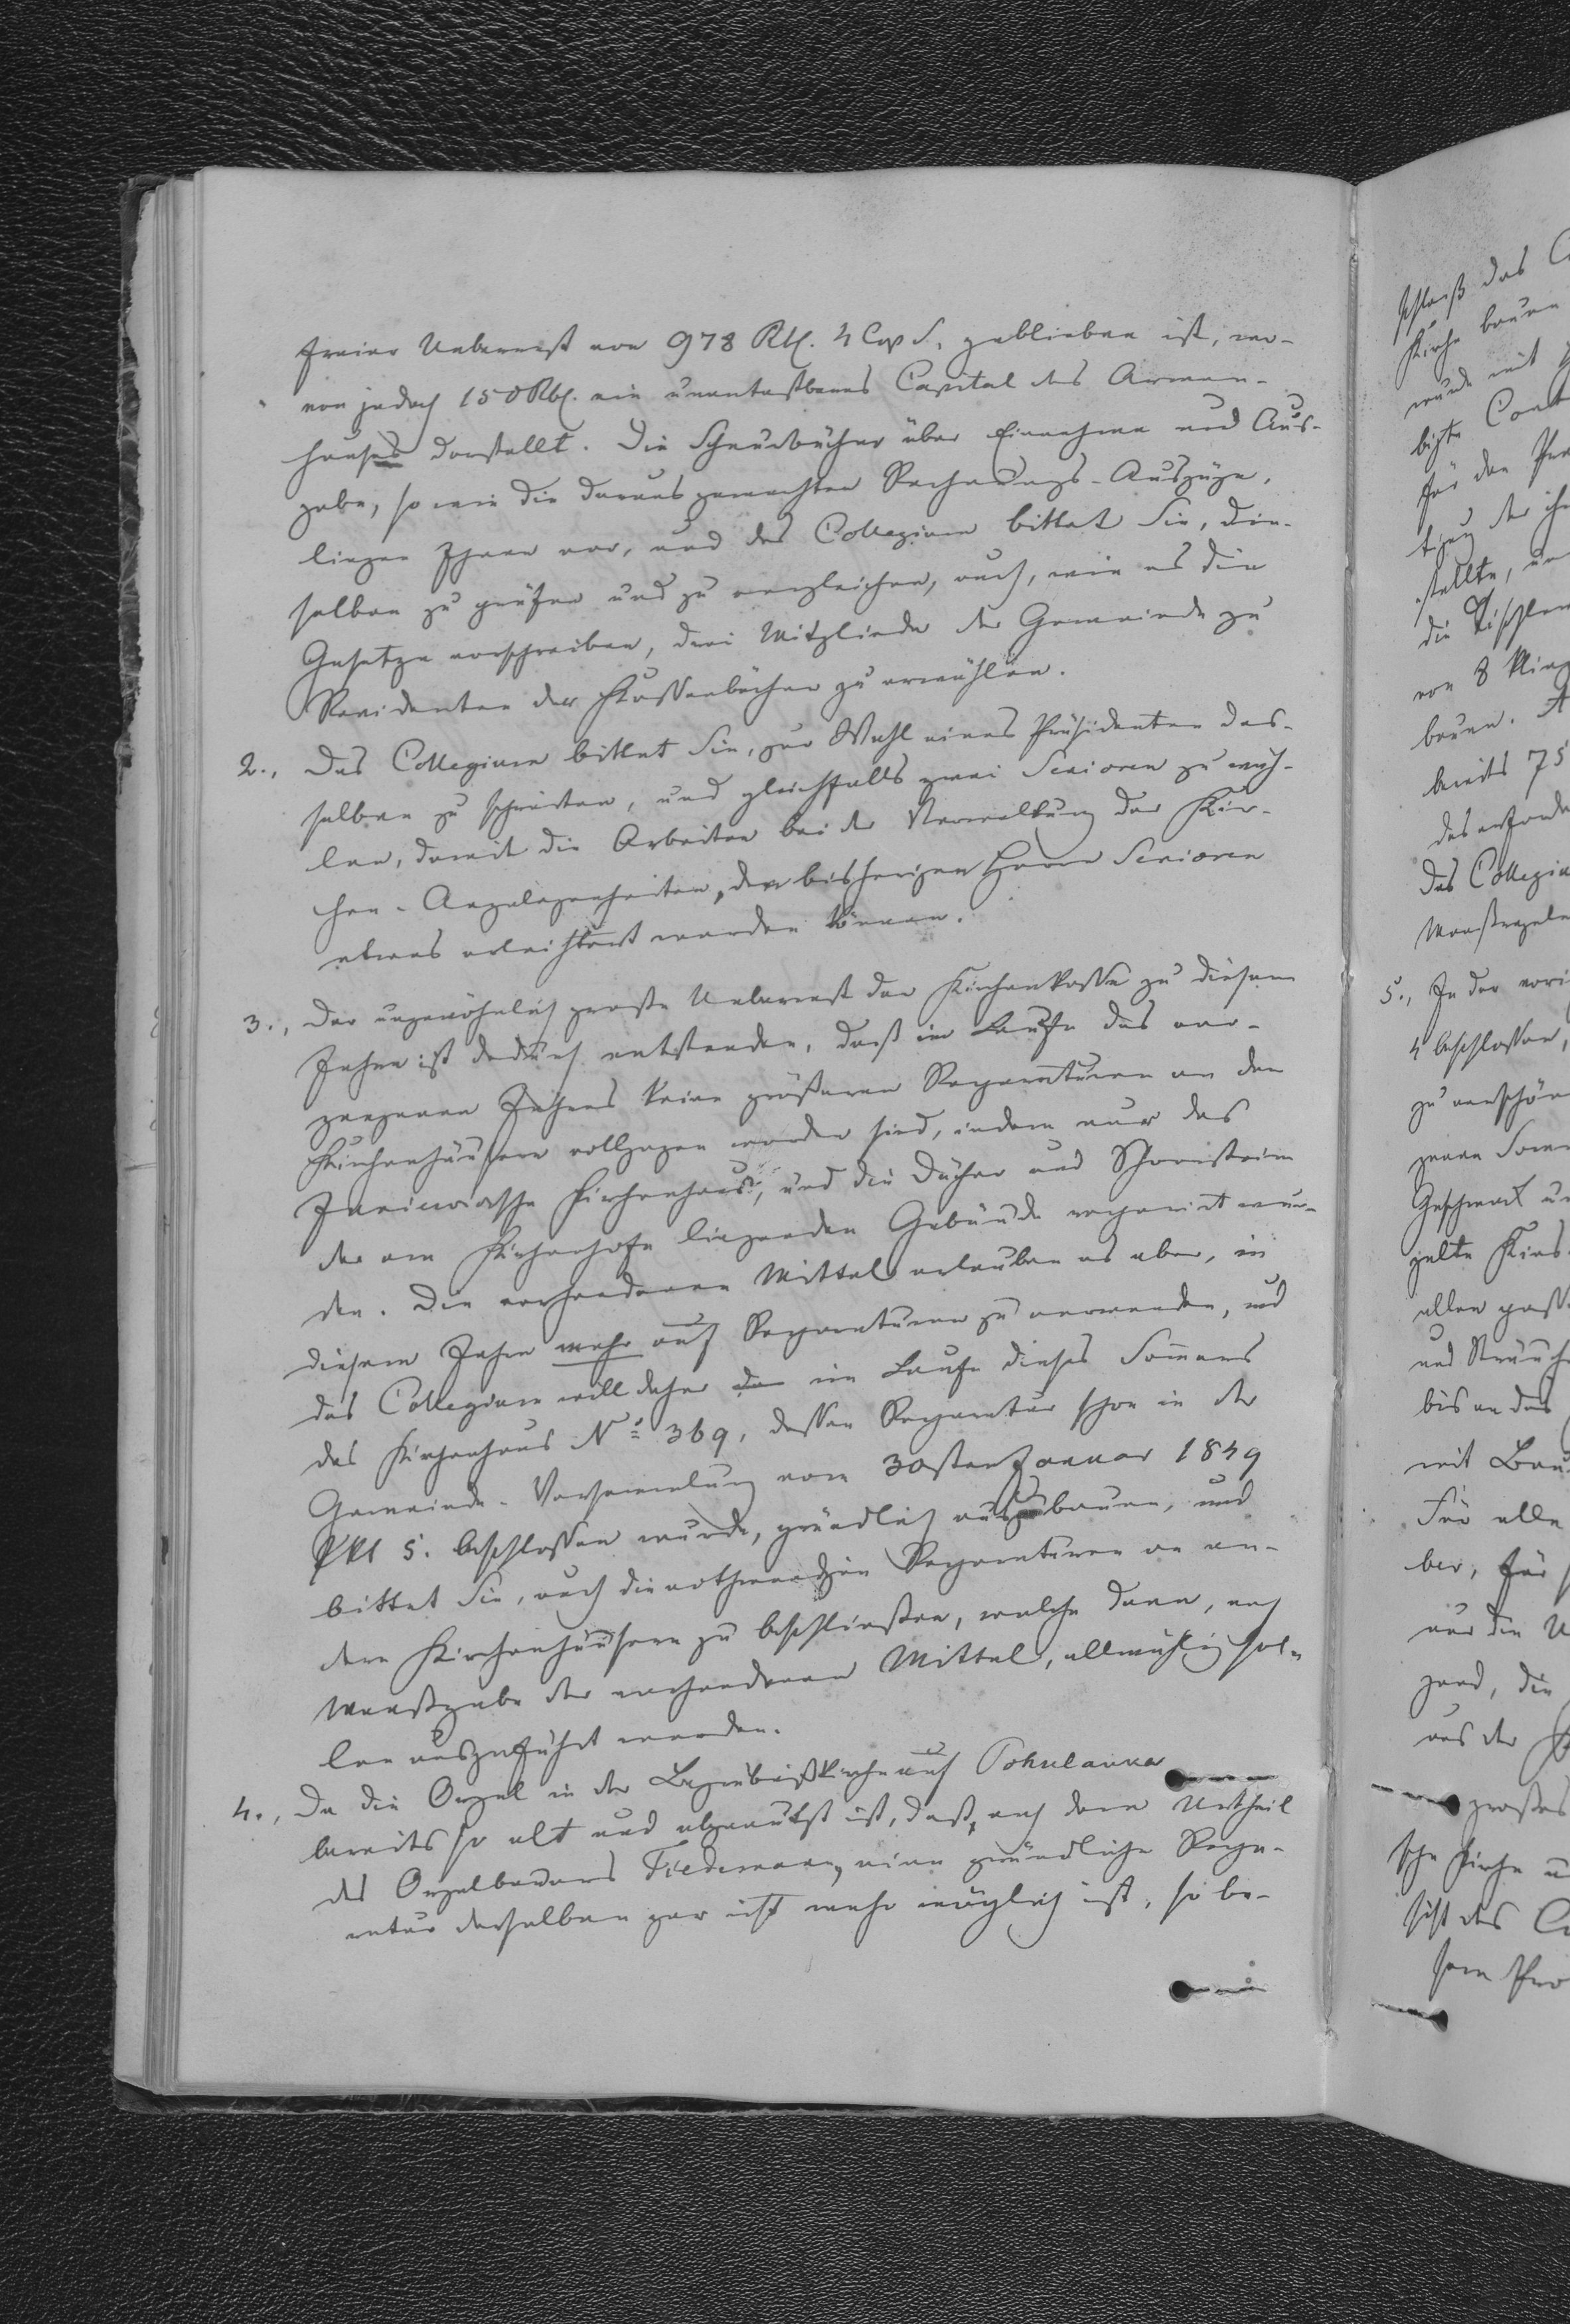 freier Ueberrest von 978 Rbl. 4 Cop S. geblieben ist, wo-
von jedoch 150 Rbl. ein unantastbares Capital des Armen-
hauses darstellt. Die Schnurbücher über Einnahme und Aus-
gabe, so wie die daraus gemachten Rechnungs-Auszüge,
liegen Ihnen vor, und das Collegium bittet Sie, die-
selben zu prüfen und zu vergleichen, auch, wie es die
Gesetze vorschreiben, drei Mitglieder der Gemeinde zu
Revidenten der Kassenbücher zu erwählen.
2., Das Collegium bittet Sie, zur Wahl eines Präsidenten des-
selben zu schreiten, und gleichfalls zwei Senioren zu wäh-
len, damit die Arbeiten bei der Verwaltung der Kir-
chen-Angelegenheiten, den bisherigen Herrn Senioren
etwas erleichtert werden können.
3., Der ungewöhnlich große Ueberrest der Kirchenkasse zu diesem
Jahre ist dadurch entstanden, daß im Laufe des ver-
gangenen Jahres keine größeren Reparaturen an den
Kirchenhäusern vollzogen worden sind, indem nur das
Kirchenhaus, und die Dächer und Schornsteine
der am Kirchenhofe liegenden Gebäude reparirt wur-
den. Die vorhandenen Mittel erlauben es aber, in
diesem Jahre mehr auf Reparaturen zu verwenden, und
das Collegium will daher im Laufe dieses Sommers
das Kirchenhaus No 369, dessen Reparatur schon in der
Gemeinde-Versammlung vom 30sten Januar 1849
Pkt 5. beschlossen wurde, gründlich auszubauen, und
bittet Sie, auch die nothwendigen Reparaturen an an-
dern Kirchenhäusern zu beschließen, welche dann, nach
Maaßgabe der vorhandenen Mittel, allmählig sol-
len ausgeführt werden.
4., Da die Orgel in der Begräbnißkirche auf Pohulanka
bereits so alt und abgenutzt ist, daß, nach dem Urtheil
des Orgelbauers Tiedemann, eine gründliche Repa-
ratur derselben gar nicht mehr möglich ist, so be-
schloß das
Kirche bauen
wurde mit
Cont
für den
der
stellte,
die Tischler
von 8
bauen.
bereits 75
Das Collegiu
Maaßregeln
5., In der vori
4 beschlossen,
zu verschön
Geschmack
allen
und
bis an das
mit
Für alle
ber, für
nur die
die
aus der
großes
Kirche